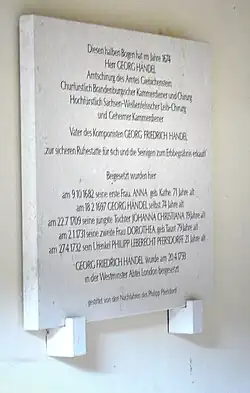 Diesen halben Bogen hat im Jahre 1674
Herr GEORG HÄNDEL
Amtschirurg des Amtes Giebichenstein
Churfürstlich Brandenburgischer Kammerdiener und Chirurg
Hochfürstlich Sachsen-Weißenfelsischer Leib-Chirurg
und Geheimer Kammerdiener
Vater des Komponisten GEORG FRIEDRICH HÄNDEL
„zur sicheren Ruhestätte für sich und die Seinigen zum Erbbegräbnis erkauft“
Beigesetzt wurden hier:
am 9.10.1682 seine erste Frau, ANNA, geb. Kathe, 71 Jahre alt
am 18.2.1697 GEORG HÄNDEL selbst 74 Jahre alt
am 22.7.1709 seine jüngste Tochter JOHANNA CHRISTIANA 19 Jahre alt
am 2.1.1731 seine zweite Frau DOROTHEA, geb. Taust 79 Jahre alt
am 27.4.1732 sein Urenkel PHILIPP LEBERECHT PFERSDORFF, 21 Jahre alt
GEORG FRIEDRICH HÄNDEL wurde am 20.4.1759
in der Westminster Abtei London beigesetzt
gestiftet von den Nachfahren des Philipp Pfersdorff